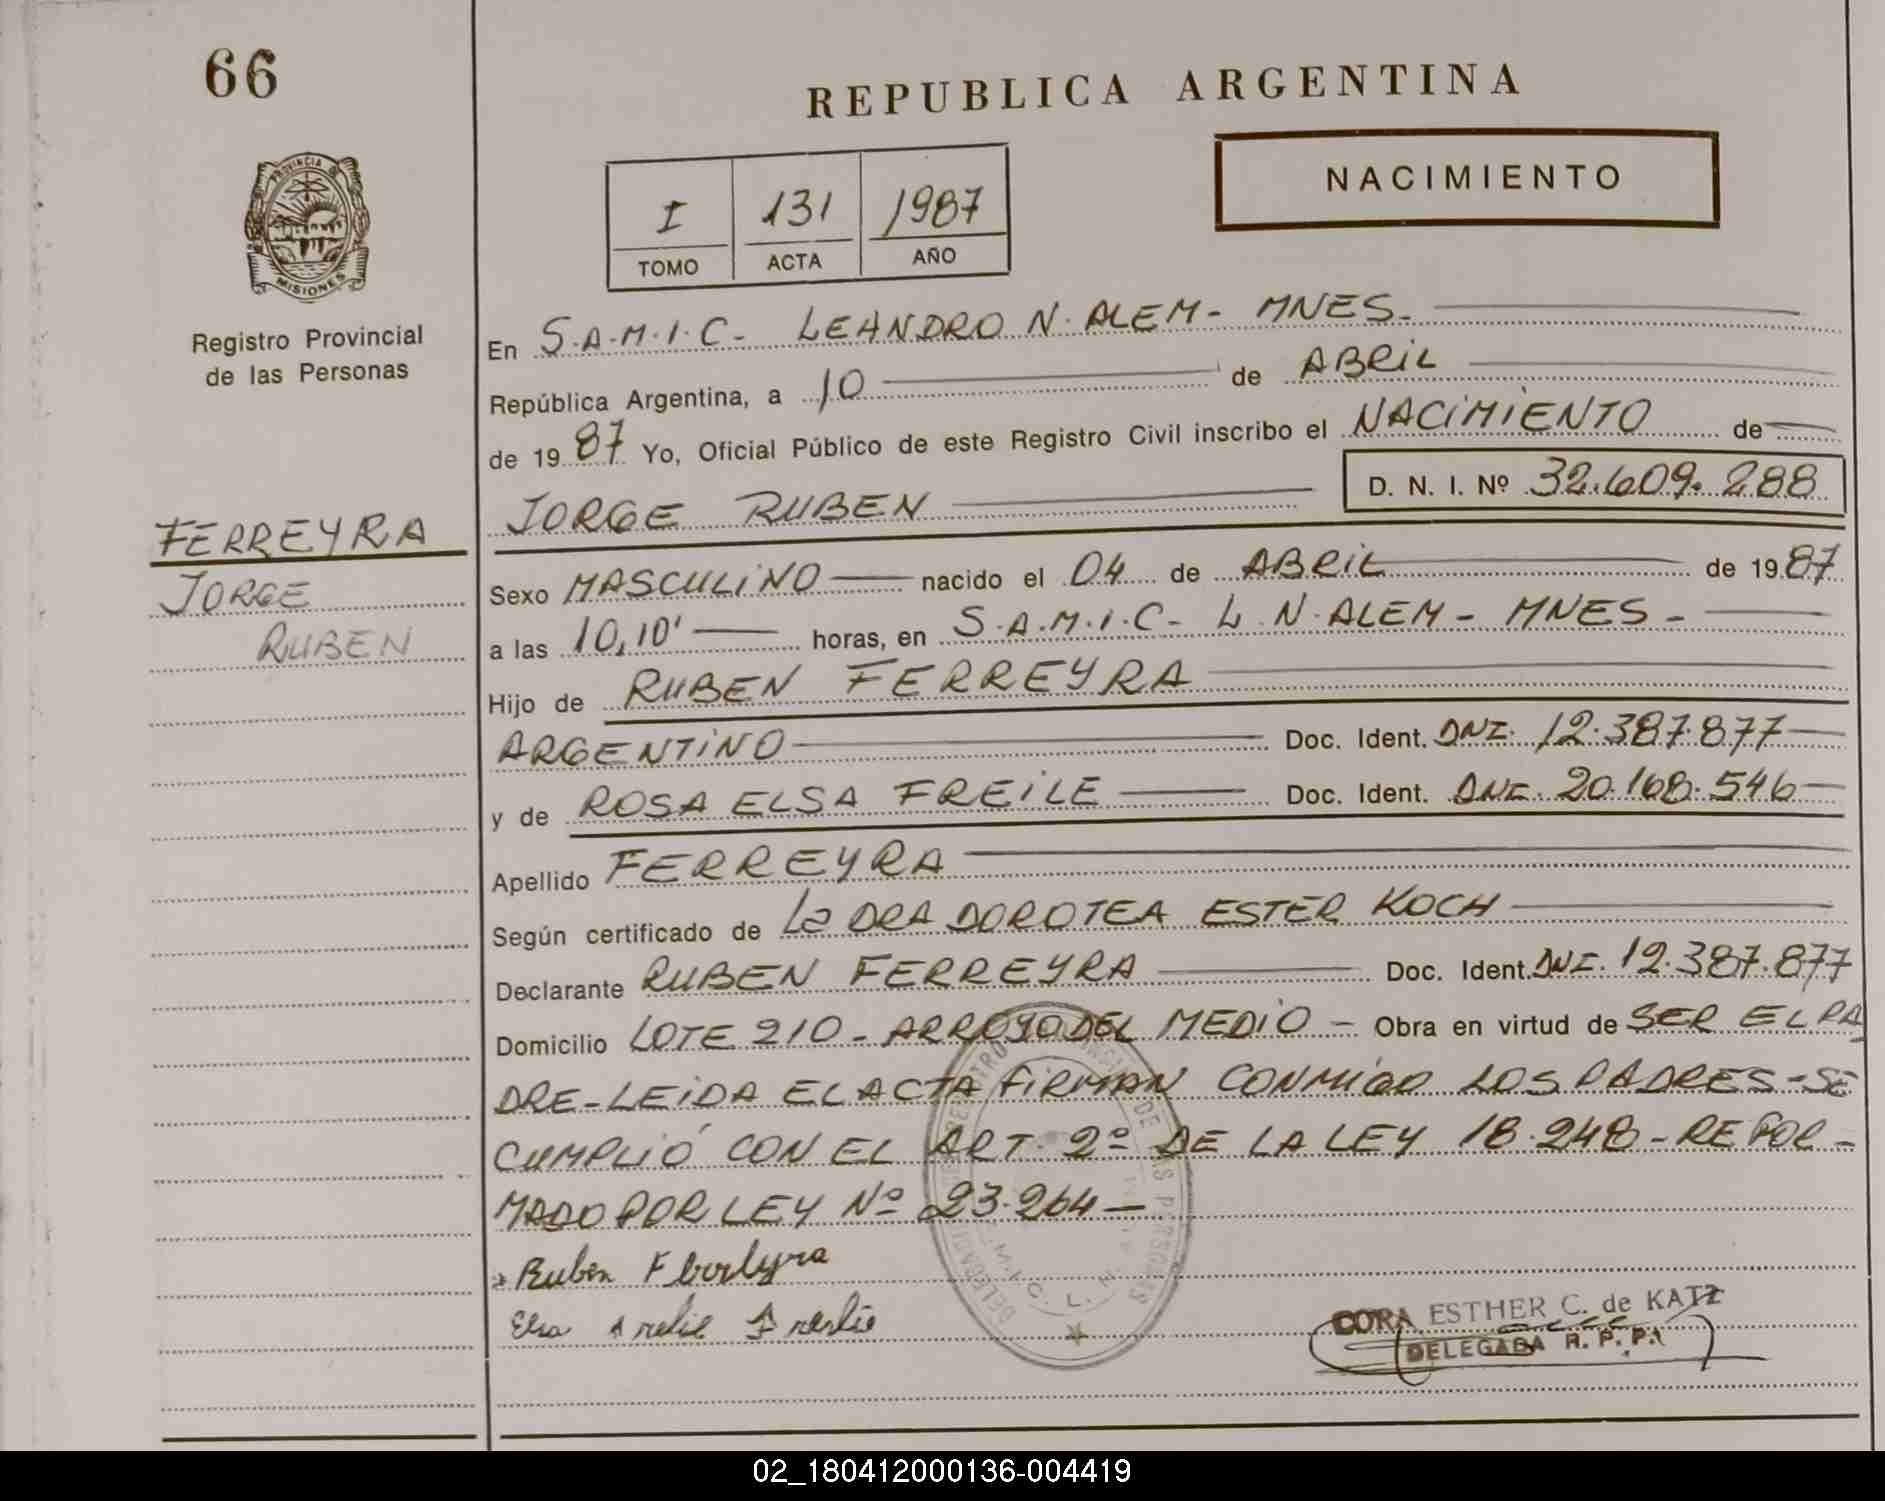 66
REPUBLICA ARGENTINA
PROVINCIA DE
MISIONES
NACIMIENTO
I 131 1987
TOMO ACTA AÑO
Registro Provincial
de las Personas
En S.A.M.I.C- LEANDRO N. ALEM- MNES.
República Argentina, a 10 de ABRIL
de 1987 Yo, Oficial Público de este Registro Civil inscribo el NACIMIENTO de
D. N. I. Nº 32.609.288
JORGE RUBEN
FERREYRA
JORGE
RUBEN
Sexo MASCULINO nacido el 04 de ABRIL de 1987
a las 10,10' horas, en S.A.M.I.C- L.N.ALEM- MNES-
Hijo de RUBEN FERREYRA
ARGENTINO Doc. Ident. DNI. 12.387.877
y de ROSA ELSA FREILE Doc. Ident. DNI. 20.168.546
Apellido FERREYRA
Según certificado de La DRA DOROTEA ESTER KOCH
Declarante RUBEN FERREYRA Doc. Ident. DNI. 12.387.877
Domicilio LOTE 210- ARROYO DEL MEDIO- Obra en virtud de SER EL PA
DRE-LEIDA EL ACTA FIRMAN CONMIGO LOS PADRES-SE
CUMPLIÓ CON EL ART. 2º DE LA LEY 18.248-REFOR-
MADO POR LEY Nº 23.264-
Ruben
Elsa
CORA ESTHER C. de KATZ
DELEGADA R. P. P.
02_180412000136-004419